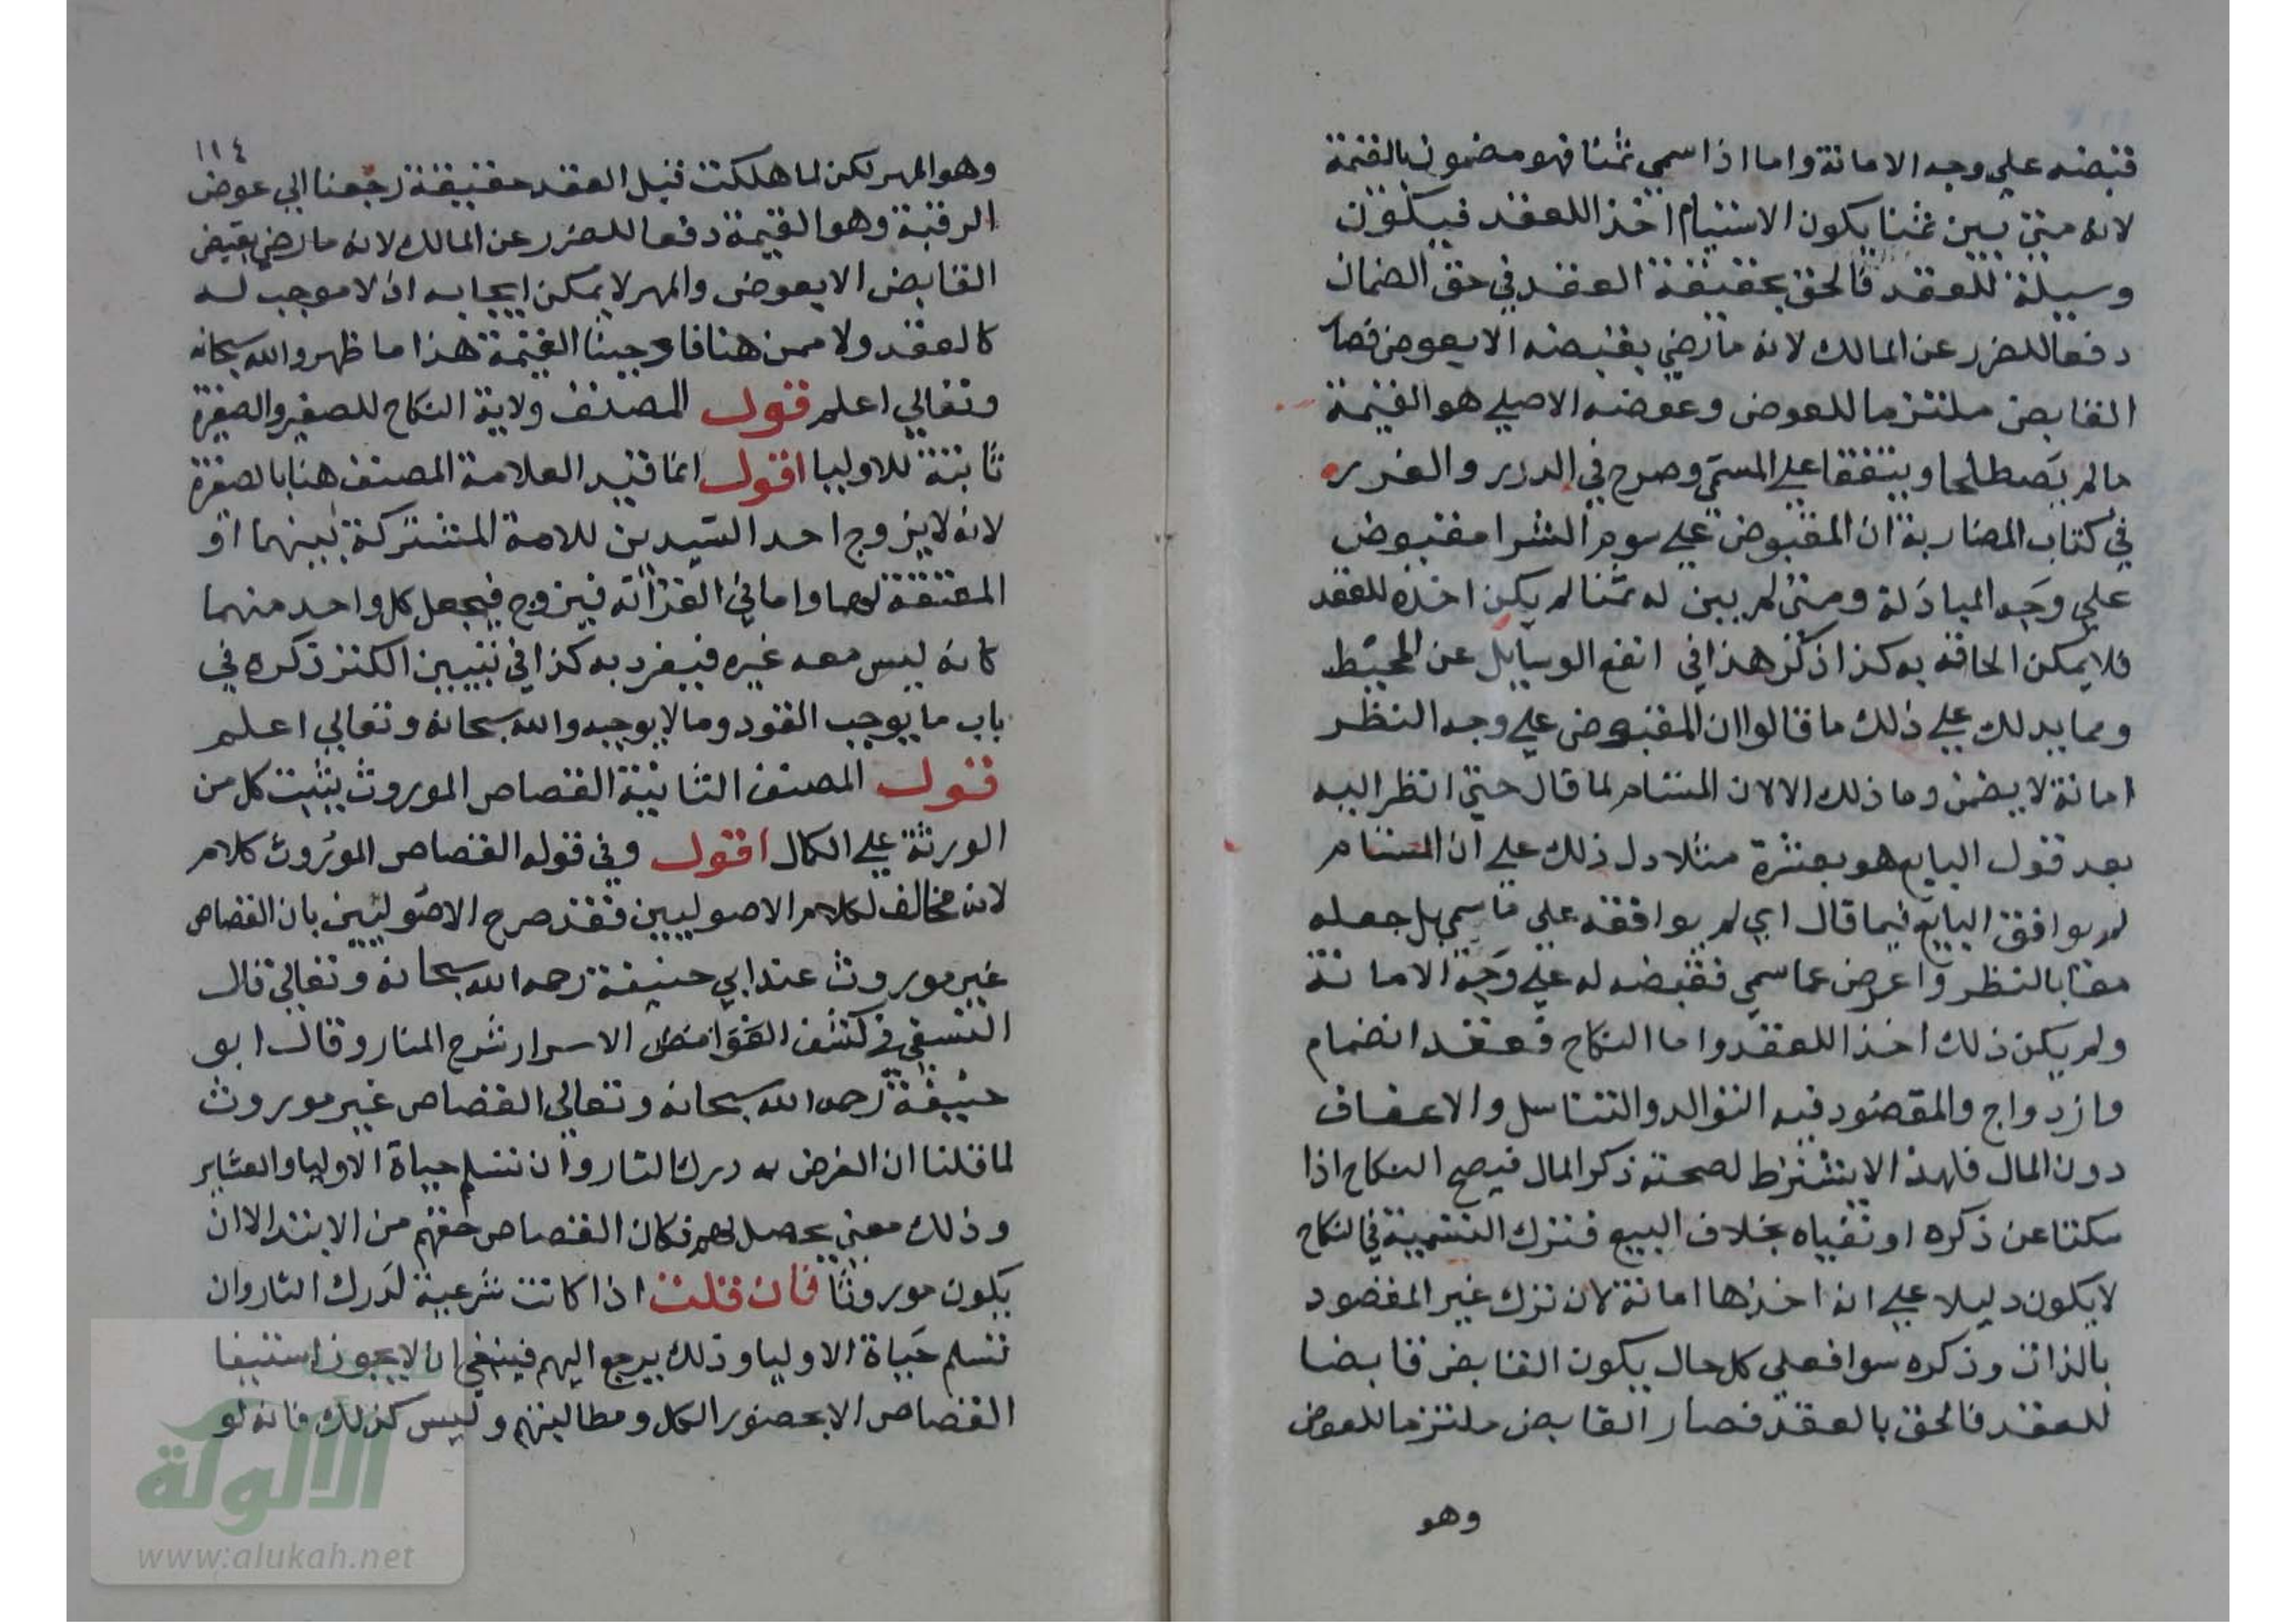 قبضه علي وجه الامانة واما اذا سمي ثمنا فهو مضمون بالقيمة
لانه متي بين ثمنا يكون الاستيام اخذا للعقد فيكون
وسيلة للعقد فالحق بحقيقة العقد في حق الضمان
دفعا للضرر عن المالك لانه ما رضي بقبضه الا بعوض فصار
القابض ملتزما للعوض وعوضه الاصلي هو القيمة
ما لم يصطلحا ويتفقا علي المسمي وصرح في الدرر والغرر
في كتاب المضاربة ان المقبوض علي سوم الشرا مقبوض
علي وجه المبادلة ومتي لم يبين له ثمنا لم يكن اخذه للعقد
فلا يمكن الحاقه به كذا ذكر هذا في انفع الوسايل عن المحيط
ومما يدلك علي ذلك ما قالوا ان المقبوض علي وجه النظر
امانة لا يضمن وما ذلك الا لان المستام لما قال حتي انظر اليه
بعد قول البايع هو بعشرة مثلا دل ذلك علي ان المستام
لم يوافق البايع فيما قال اي لم يوافقه علي ما سمي بل جعله
مغيا بالنظر واعرض عما سمي فقبضه له علي وجه الامانة
ولم يكن ذلك اخذا للعقد واما النكاح فعقد انضمام
وازدواج والمقصود فيه التوالد والتناسل والاعفاف
دون المال فلهذا لا يشترط لصحته ذكر المال فيصح النكاح اذا
سكتا عن ذكره او نفياه بخلاف البيع فترك التسمية في النكاح
لا يكون دليلا علي انه اخذها امانة لان ترك غير المقصود
بالذات وذكره سوا فعلي كل حال يكون القابض قابضا
للعقد فالحق بالعقد فصار القابض ملتزما للعوض
وهو
١١٤
وهو المهر لكن لما هلكت قبل العقد حقيقة رجعنا الي عوض
الرقبة وهو القيمة دفعا للضرر عن المالك لانه ما رضي بقبض
القابض الا بعوض والمهر لا يمكن ايجابه اذ لا موجب له
كالعقد ولا ممن هنا فاوجبنا القيمة هذا ما ظهر والله سبحانه
وتعالي اعلم قول المصنف ولاية النكاح للصغير والصغيرة
ثابتة للاوليا اقول انما قيد العلامة المصنف هنا بالصغيرة
لانه لا يزوج احد السيدين للامة المشتركة بينهما او
المعتقة لهما واما في القرابة فيزوج فيجعل كل واحد منهما
كانه ليس معه غيره فيفرد به كذا في تبيين الكنز ذكره في
باب ما يوجب القود وما لا يوجبه والله سبحانه وتعالي اعلم
قول المصنف الثانية القصاص الموروث يثبت كل من
الورثة علي الكمال اقول وفي قوله القصاص الموروث كلام
لانه مخالف لكلام الاصوليين فقد صرح الاصوليين بان القصاص
غير موروث عند ابي حنيفة رحمه الله سبحانه وتعالي قال
النسفي في كشف الغوامض الاسرار شرح المنار وقال ابو
حنيفة رحمه الله سبحانه وتعالي القصاص غير موروث
لما قلنا ان الغرض به درك الثار وان تسلم حياة الاوليا والعشاير
وذلك معني يحصل لهم فكان القصاص حقهم من الابتدا لا ان
يكون موروثا فان قلت اذا كانت شرعية لدرك الثار وان
تسلم حياة الاوليا وذلك يرجع اليهم فينبغي ان لا يجوز استيفا
القصاص الا بحضور الكل ومطالبتهم وليس كذلك فانه لو
الألوكة
www.alukah.net